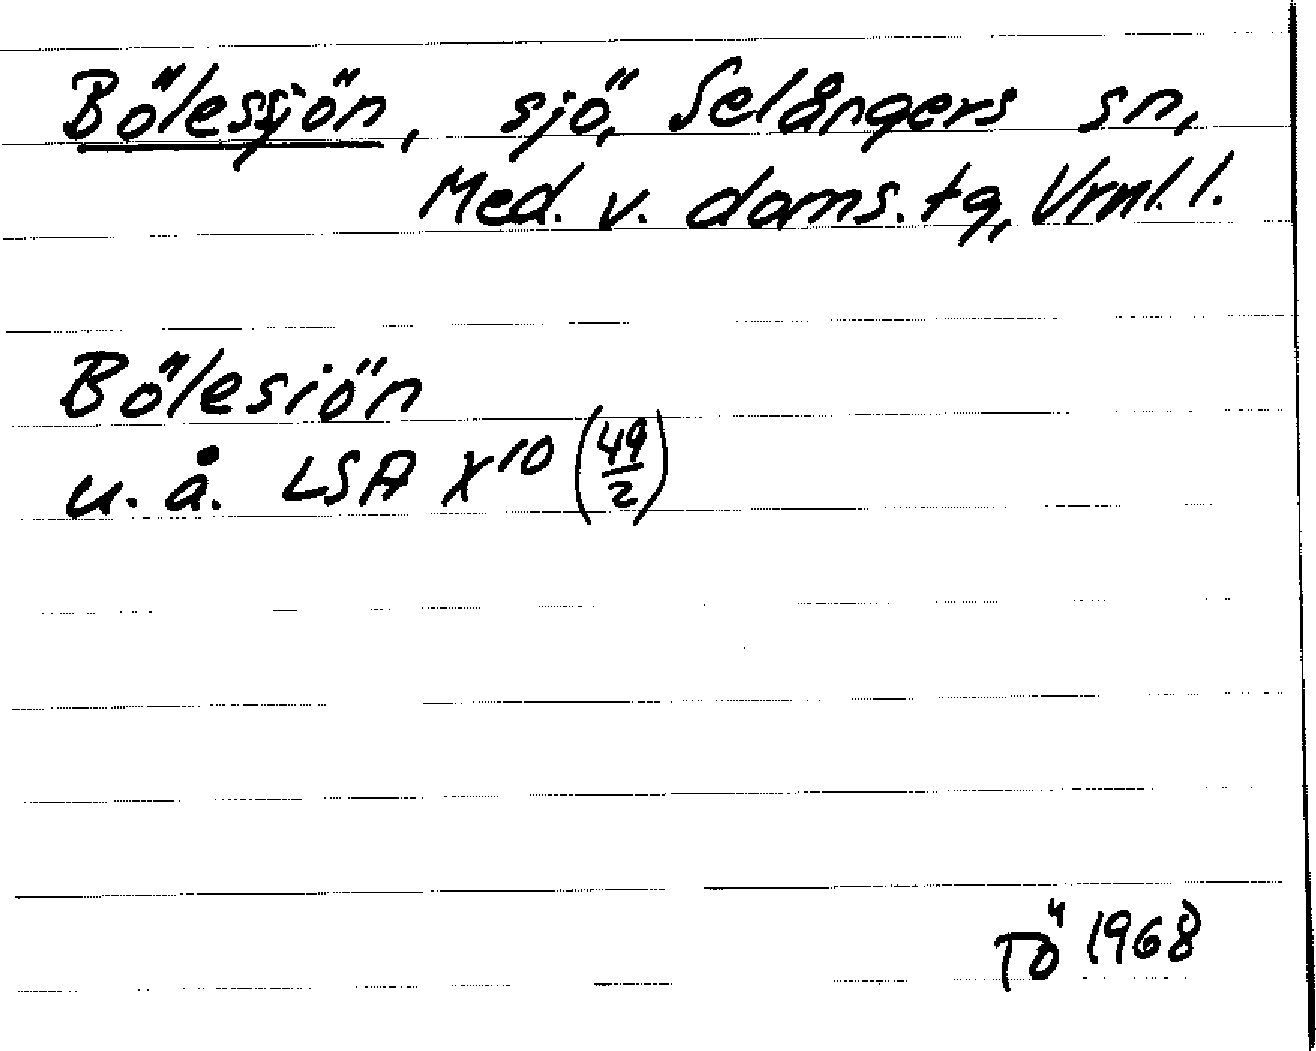 Bölessjön, sjö, Selångers sn,
Med. v. doms. tg, Vrnl. l.
Bölesiön
u. å. LSA X10 (49/2)
TÖ 1968